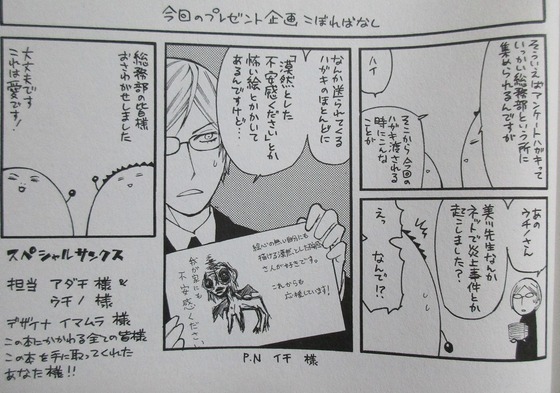 今回のプレゼント企画こぼればなし
そういえばアンケートハガキって
いっかい総務部という所に
集められるんですが
ハイ
そこから今回の
ハガキ渡される
時にこんな
ことが
あの
ウチノさん
美川先生なんか
ネットで炎上事件とか
起こしました?
えっ
なんで!?
なんか送られてくる
ハガキのほとんどに
「漠然とした
不安感ください」とか
怖い絵とかかいて
あるんですけど…
絵心の無い自分にも
描ける漠然とした不安感
さんが好きです。
これからも
応援しています!
我が家にも
不安感ください
P.N イチ 様
総務部の皆様
おさわがせしました
大丈夫です
これは愛です!
スペシャルサンクス
担当 アダチ 様 &
ウチノ 様
デザイナ イマムラ 様
この本にかかわる全ての皆様
この本を手に取ってくれた
あなた様!!